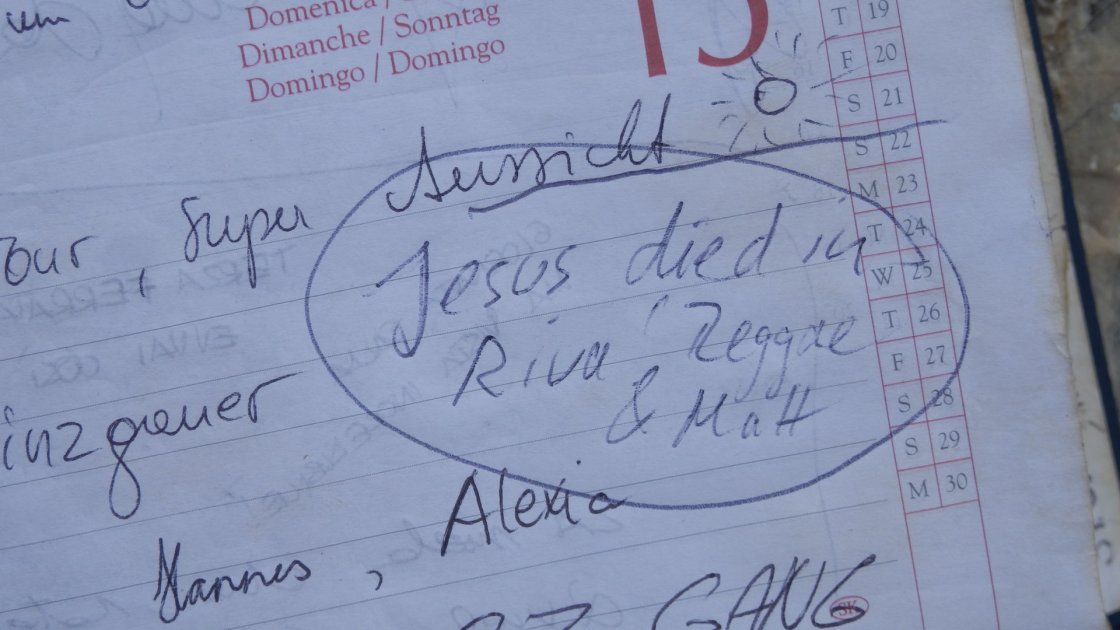 Domenica /
Dimanche / Sonntag
Domingo / Domingo
T 19
F 20
S 21
S 22
M 23
T 24
W 25
T 26
F 27
S 28
S 29
M 30
Tour, Super Aussicht
Jesus died in
Riva Reggae
& Matt
inzgauer
Hannes, Alexia
GANG
SK